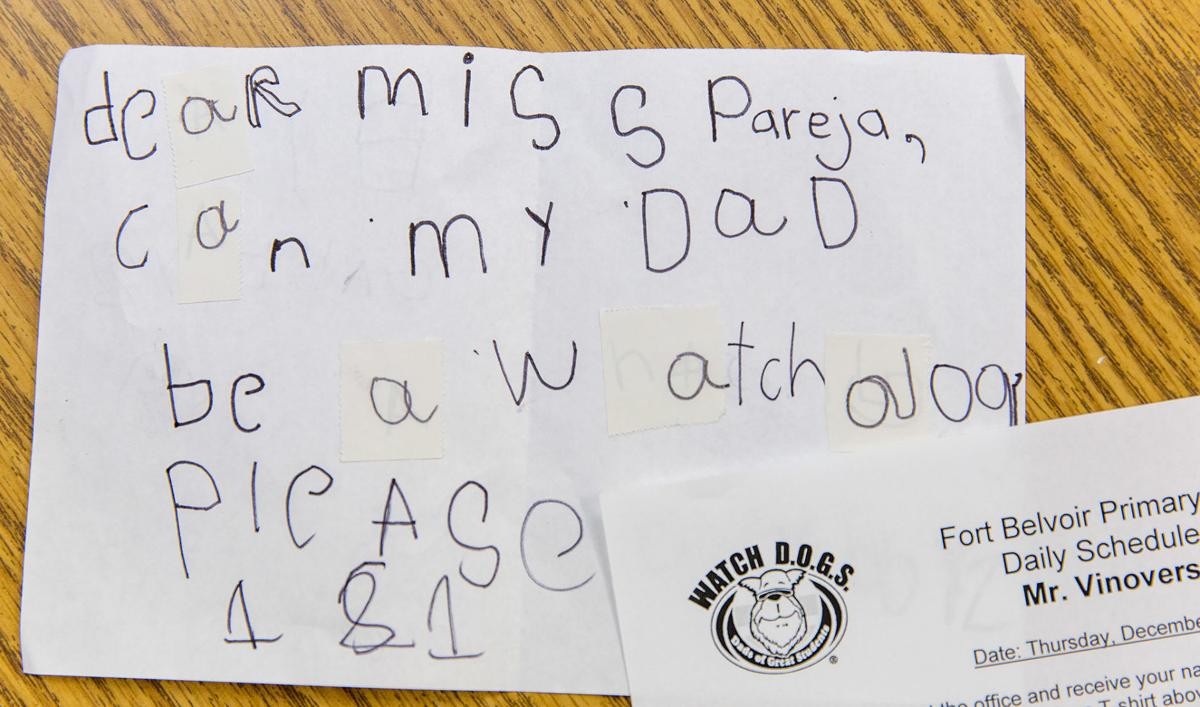 deaR miss Pareja,
can my DaD
be a watch dog
PleAse
1 & 1
WATCH D.O.G.S.
Dads of Great Students
®
Fort Belvoir Primary
Daily Schedule
Mr. Vinovers
Date: Thursday, Decembe
the office and receive your na
T-shirt abov